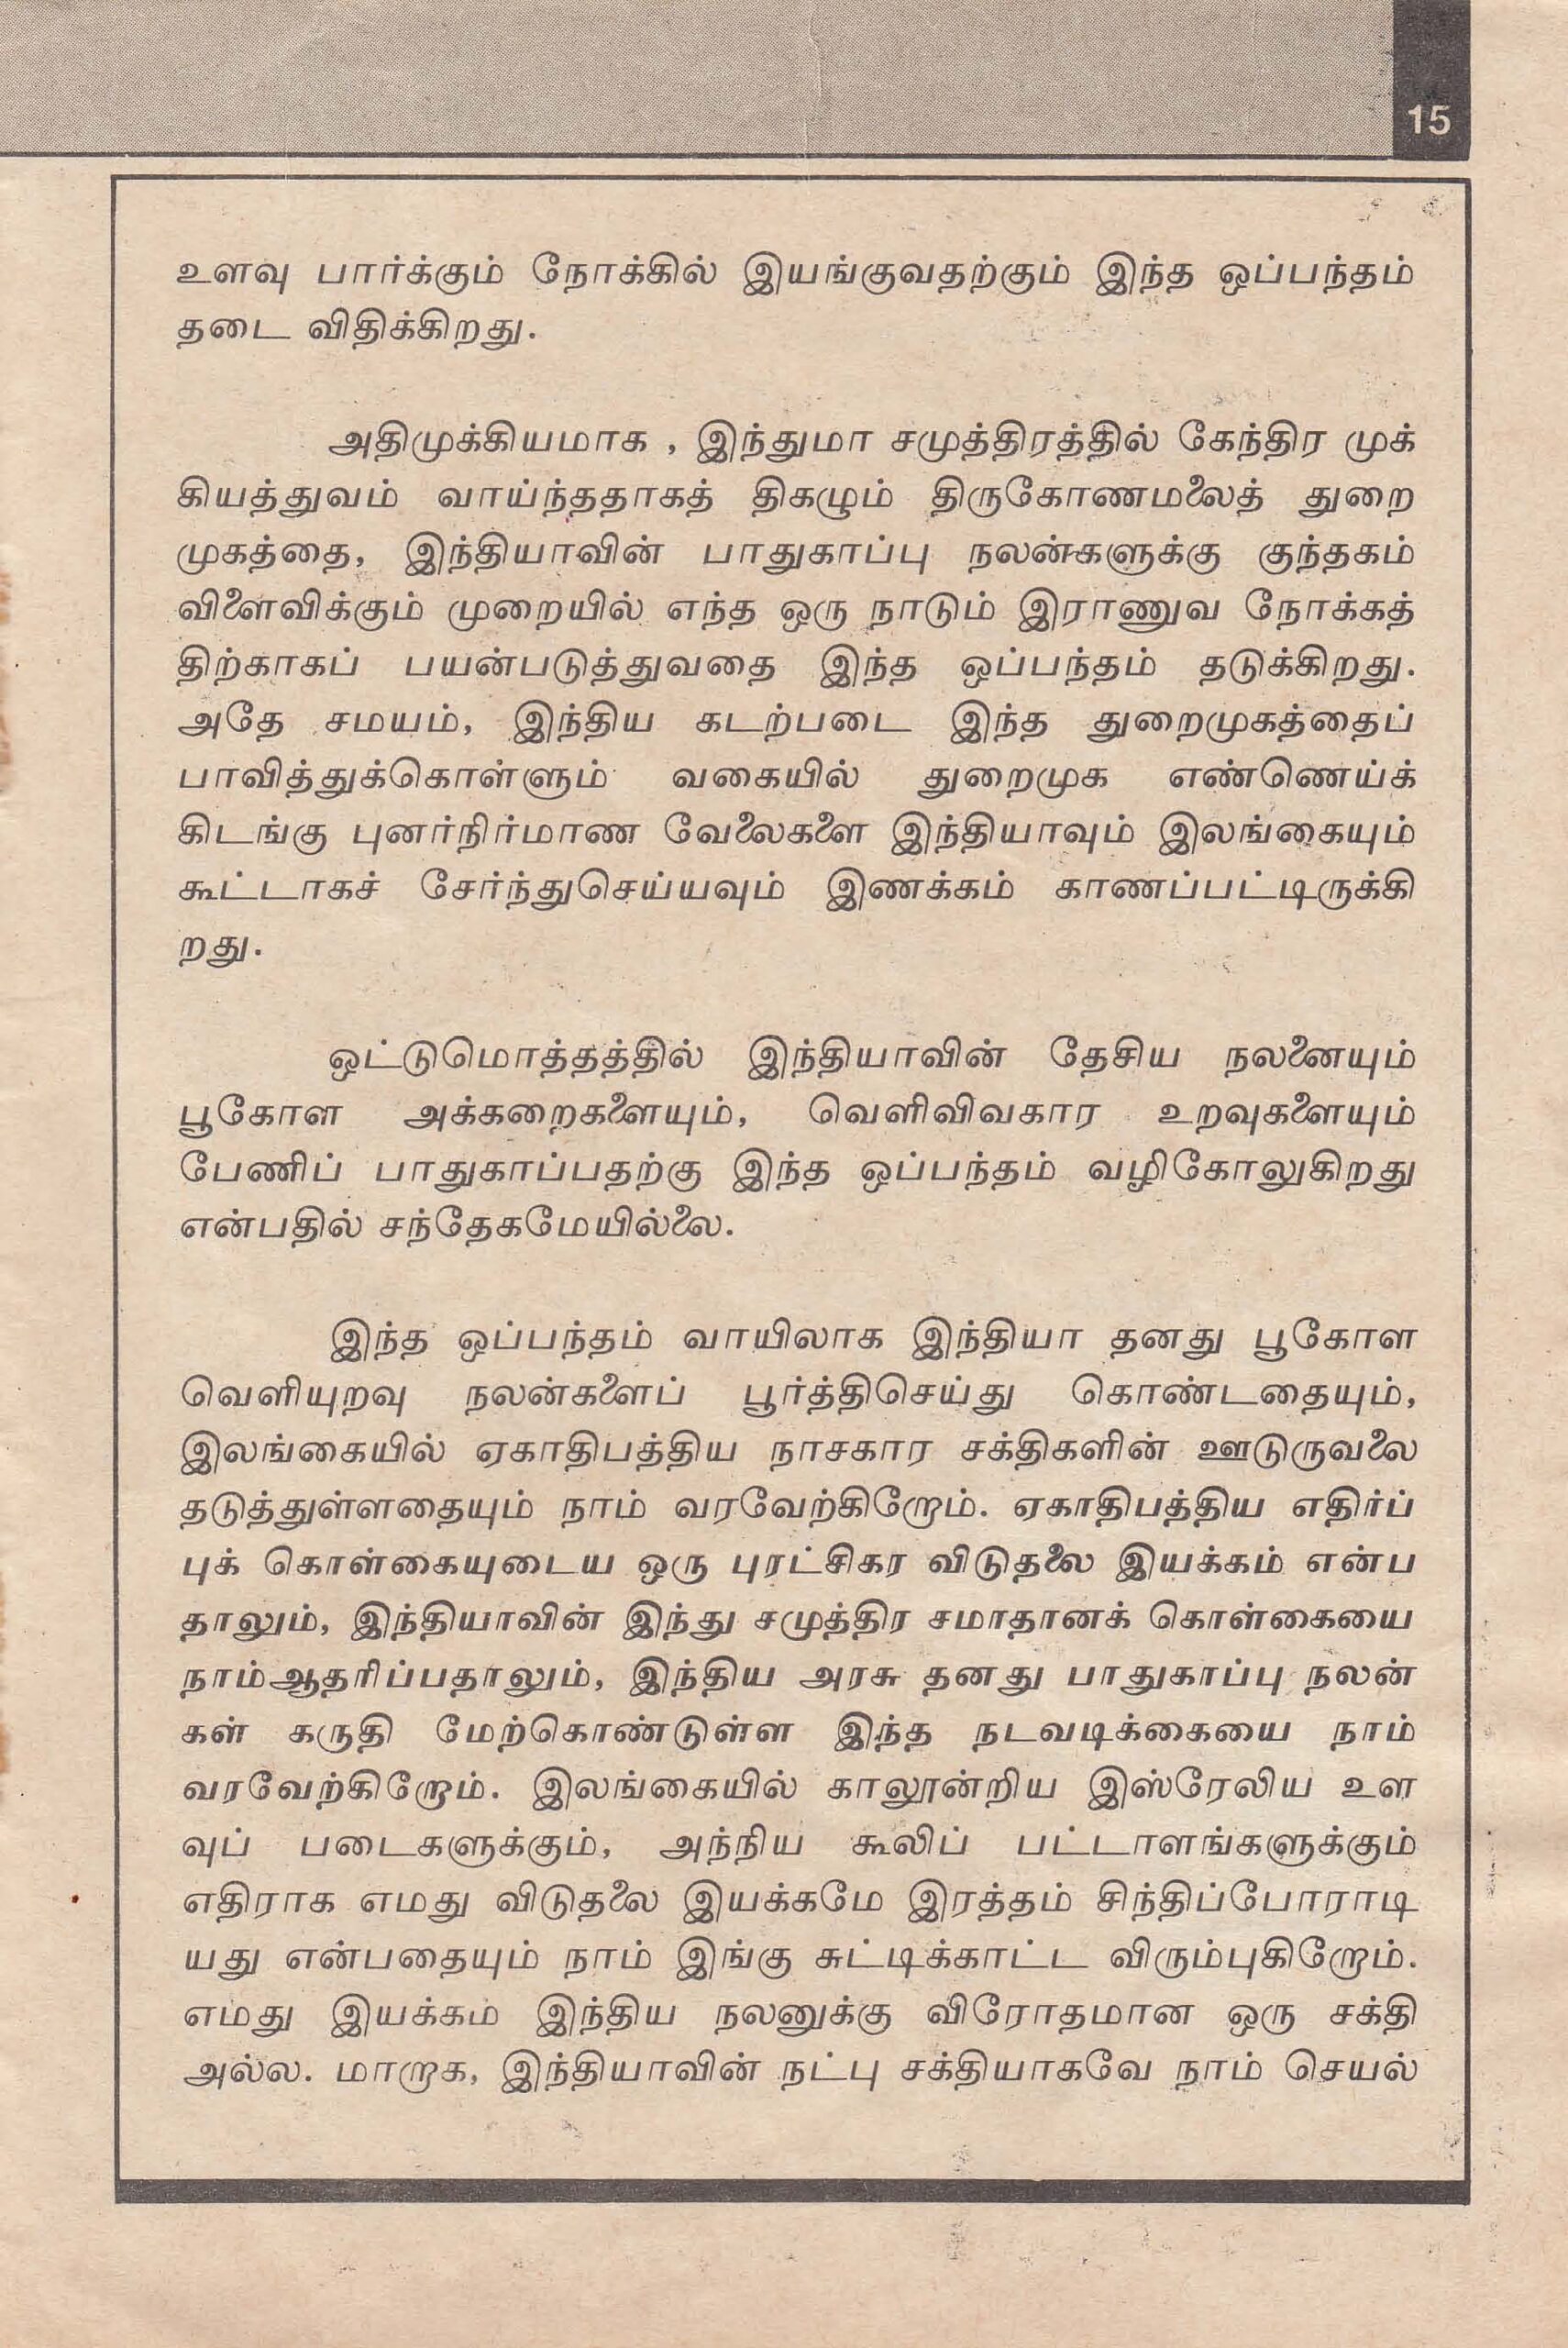 15
உளவு பார்க்கும் நோக்கில் இயங்குவதற்கும் இந்த ஒப்பந்தம்
தடை விதிக்கிறது.
அதிமுக்கியமாக , இந்துமா சமுத்திரத்தில் கேந்திர முக்
கியத்துவம் வாய்ந்ததாகத் திகழும் திருகோணமலைத் துறை
முகத்தை, இந்தியாவின் பாதுகாப்பு நலன்களுக்கு குந்தகம்
விளைவிக்கும் முறையில் எந்த ஒரு நாடும் இராணுவ நோக்கத்
திற்காகப் பயன்படுத்துவதை இந்த ஒப்பந்தம் தடுக்கிறது.
அதே சமயம், இந்திய கடற்படை இந்த துறைமுகத்தைப்
பாவித்துக்கொள்ளும் வகையில் துறைமுக எண்ணெய்க்
கிடங்கு புனர்நிர்மாண வேலைகளை இந்தியாவும் இலங்கையும்
கூட்டாகச் சேர்ந்துசெய்யவும் இணக்கம் காணப்பட்டிருக்கி
றது.
ஒட்டுமொத்தத்தில் இந்தியாவின் தேசிய நலனையும்
பூகோள அக்கறைகளையும், வெளிவிவகார உறவுகளையும்
பேணிப் பாதுகாப்பதற்கு இந்த ஒப்பந்தம் வழிகோலுகிறது
என்பதில் சந்தேகமேயில்லை.
இந்த ஒப்பந்தம் வாயிலாக இந்தியா தனது பூகோள
வெளியுறவு நலன்களைப் பூர்த்திசெய்து கொண்டதையும்,
இலங்கையில் ஏகாதிபத்திய நாசகார சக்திகளின் ஊடுருவலை
தடுத்துள்ளதையும் நாம் வரவேற்கிறோம். ஏகாதிபத்திய எதிர்ப்
புக் கொள்கையுடைய ஒரு புரட்சிகர விடுதலை இயக்கம் என்ப
தாலும், இந்தியாவின் இந்து சமுத்திர சமாதானக் கொள்கையை
நாம்ஆதரிப்பதாலும், இந்திய அரசு தனது பாதுகாப்பு நலன்
கள் கருதி மேற்கொண்டுள்ள இந்த நடவடிக்கையை நாம்
வரவேற்கிறோம். இலங்கையில் காலூன்றிய இஸ்ரேலிய உள
வுப் படைகளுக்கும், அந்நிய கூலிப் பட்டாளங்களுக்கும்
எதிராக எமது விடுதலை இயக்கமே இரத்தம் சிந்திப்போராடி
யது என்பதையும் நாம் இங்கு சுட்டிக்காட்ட விரும்புகிறோம்.
எமது இயக்கம் இந்திய நலனுக்கு விரோதமான ஒரு சக்தி
அல்ல. மாறாக, இந்தியாவின் நட்பு சக்தியாகவே நாம் செயல்